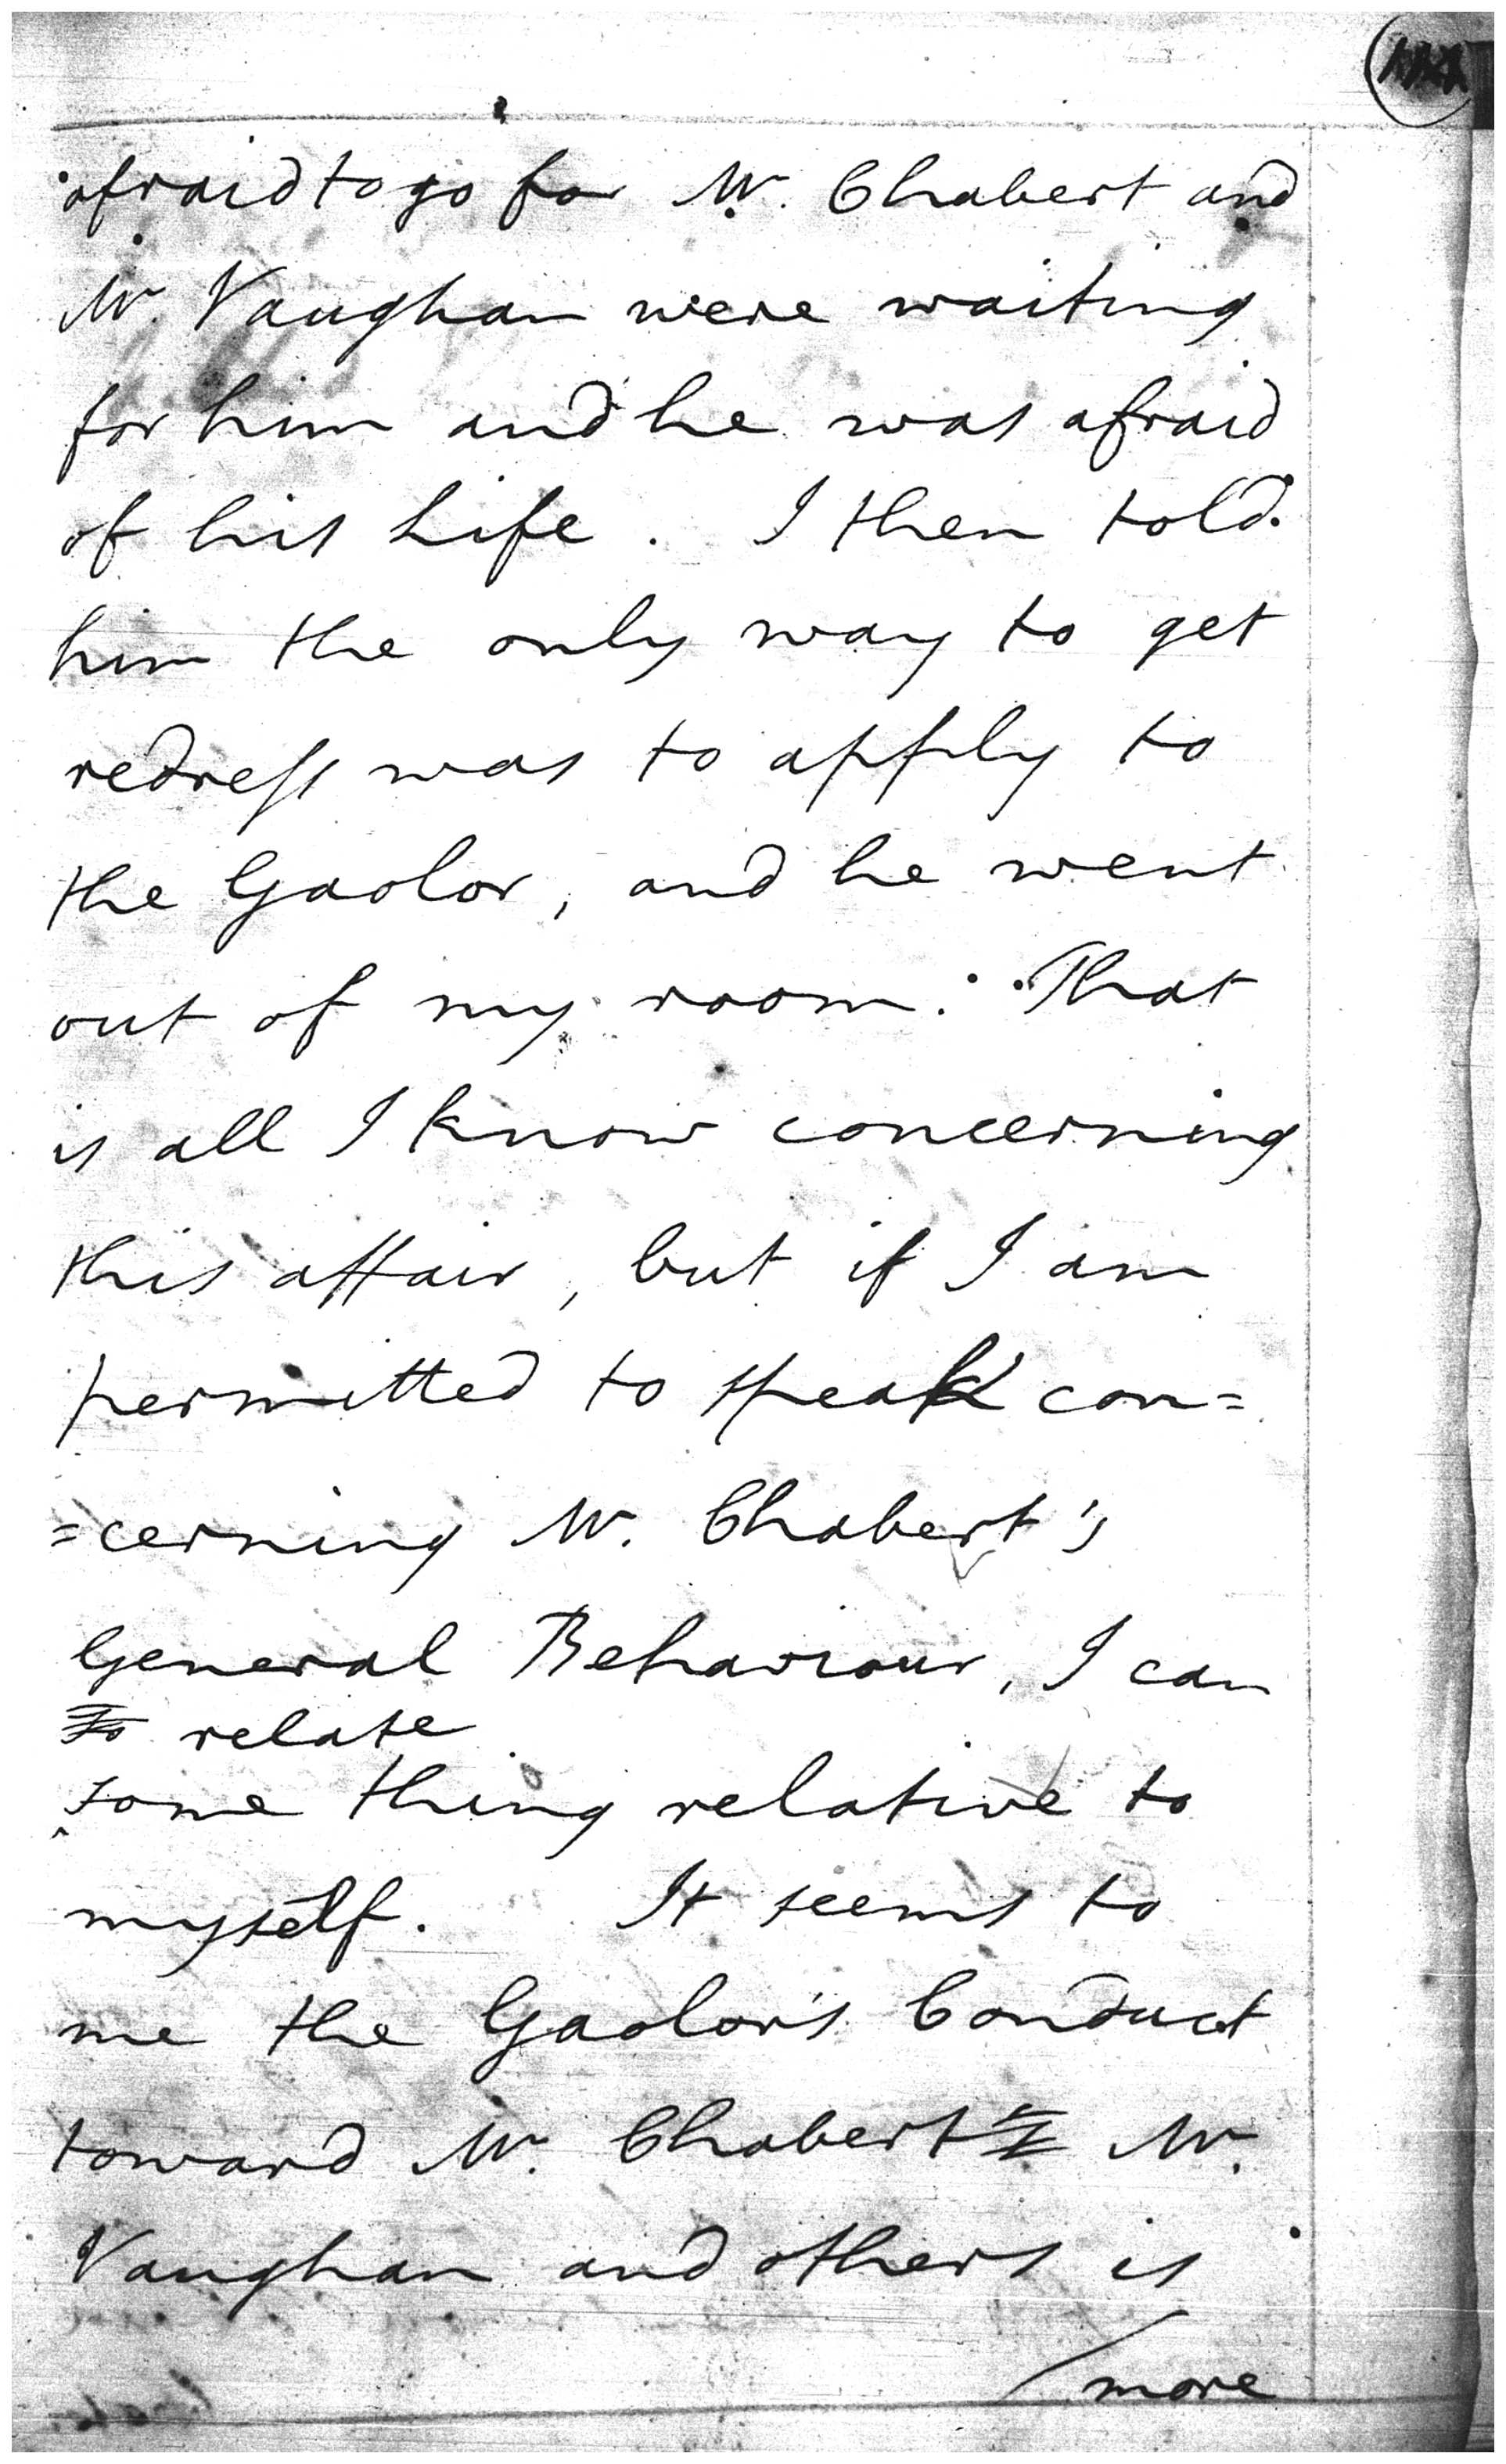 afraid to go for Mr. Chabert and
Mr. Vaughan were waiting
for him and he was afraid
of his Life. I then told
him the only way to get
redress was to apply to
the Gaolor, and he went
out of my room. That
is all I know concerning
this affair, but if I am
permitted to speak con=
=cerning Mr. Chabert's
General Behaviour, I can
to relate
some thing relative to
myself. It seems to
me the Gaolor's Conduct
toward Mr. Chabert & Mr.
Vaughan and others is
/more